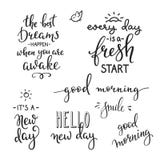 the best
Dreams
HAPPEN
when you are
awake
every day
is a
fresh
START
good morning
smile
IT'S A
New
day
HELLO
new day
good
morning